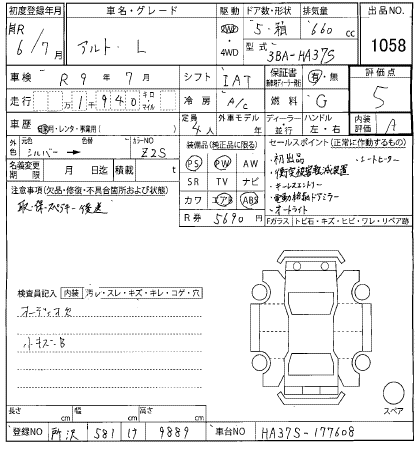 初度登録年月 車名・グレード 駆動 ドア数・形状 排気量 出品NO
R 6/7月 アルト・L 2WD 4WD 5・箱 660 cc 1058
型式 3BA-HA37S
車検 R 9年 7月 シフト IAT 保証書 有・無 評価点
走行 万 1,940 キロ マイル 冷房 A/C 燃料 G 5
車歴 自家用・レンタ・事業用( ) 定員 4人 外車モデル 年 ディーラー 並行 ハンドル 左・右 内装評価 A
外色 元色 シルバー 色替 カラーNO Z2S
装備品(純正品に限る) セールスポイント(正常に作動するもの)
名義変更期限 月 日迄 積載 t
PS PW AW ・初出品 ・シートヒーター
SR TV ナビ ・衝突被害軽減装置
注意事項(欠品・修復・不具合箇所および状態) ・キーレスエントリー
カワ エアB ABS ・電動格納ドアミラー
取・保・スペアキー後送 ・オートライト
R券 5690円 Fガラス トビ石・キズ・ヒビ・ワレ・リペア跡
検査員記入 内装 汚レ・スレ・キズ・キレ・コゲ・穴
オーディオ欠
小キズ・B
スペア
長さ cm 幅 cm 高さ cm
登録NO 所沢 581 け 9889 車台NO HA37S-177608